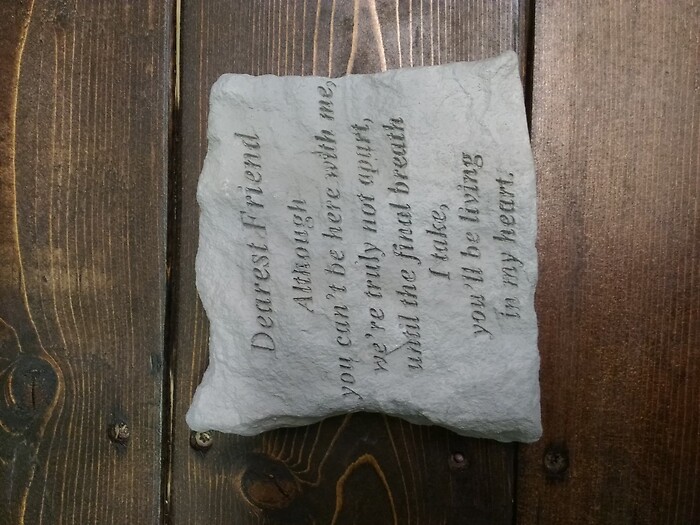 Dearest Friend
Although
you can't be here with me,
we're truly not apart,
until the final breath
I take,
you'll be living
in my heart.